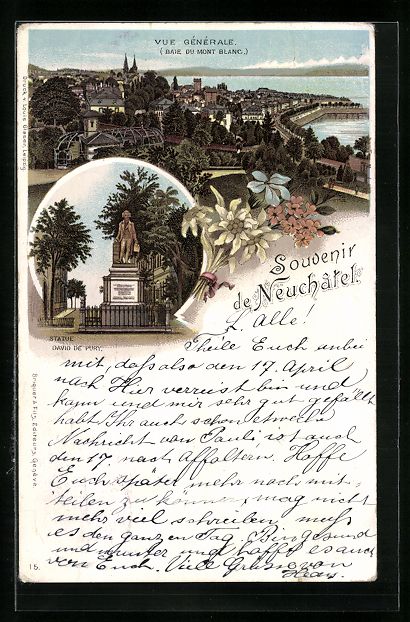 VUE GÉNÉRALE.
(BAIE DU MONT BLANC.)
Druck v. Louis Glaser, Leipzig
STATUE
DAVID DE PURY.
Souvenir
de Neuchâtel.
L. Alle!
Theile Euch anbei
mit, dass also den 17. April
nach Hier verreist bin und
kann und mir sehr gut gefällt
habt Ihr auch schon etwelche
Nachricht von Pauli ist auch
den 17. nach Affoltern. Hoffe
Euch später mehr noch mit-
teilen zu können, mag nicht
mehr viel schreiben, muss
es den ganzen Tag. Bin gesund
und munter und hoffe es auch
von Euch. Viele Grüsse von
Briquet & Fils, Editeurs, Genève
15.